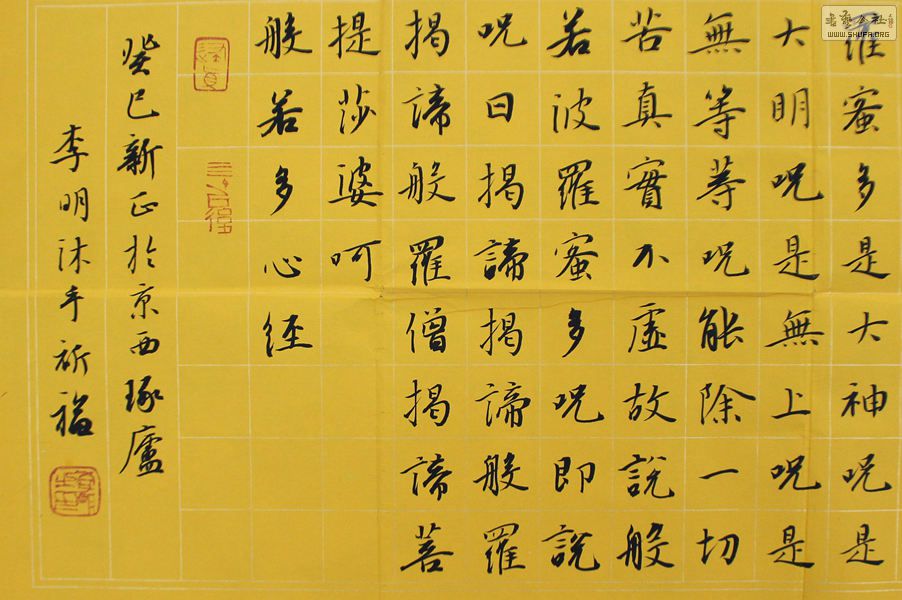 羅蜜多是大神呪是
大明呪是無上呪是
無等等呪能除一切
苦真實不虛故說般
若波羅蜜多呪即說
呪曰揭諦揭諦般羅
揭諦般羅僧揭諦菩
提莎婆呵
般若多心経
癸巳新正於京西琢廬
李明沐手祈福
書藝公社
WWW.SHUFA.ORG